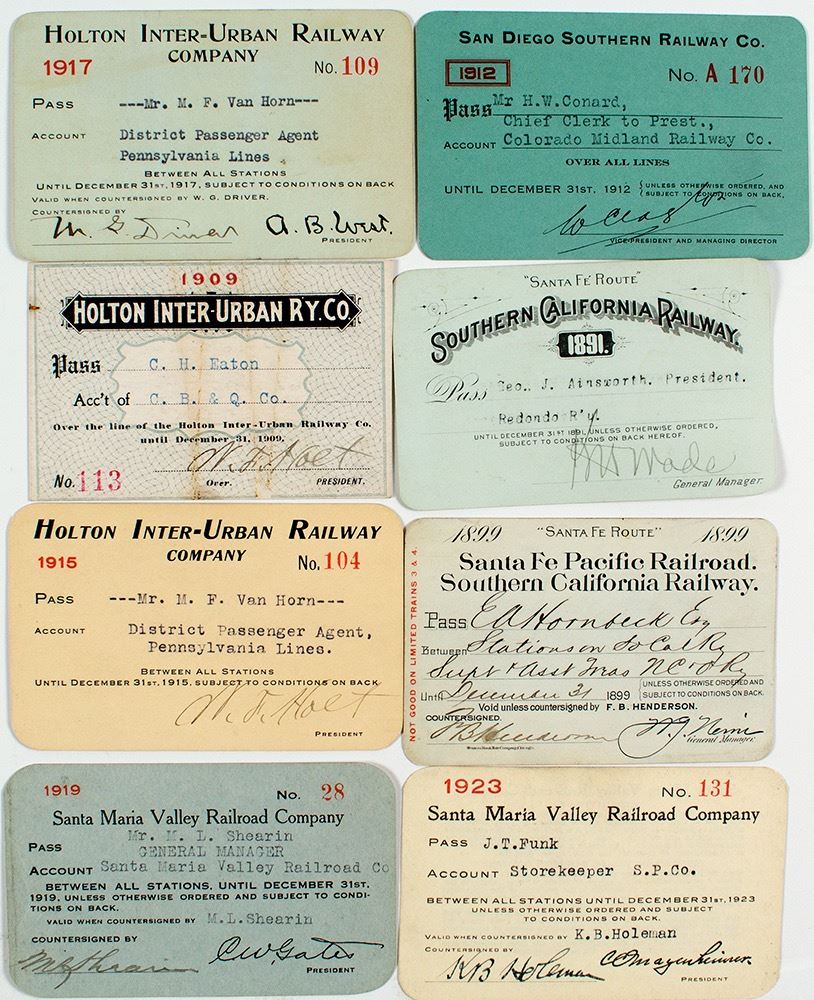 HOLTON INTER-URBAN RAILWAY
COMPANY
1917
No. 109
PASS ---Mr. M. F. Van Horn---
ACCOUNT District Passenger Agent
Pennsylvania Lines
BETWEEN ALL STATIONS
UNTIL DECEMBER 31ST, 1917, SUBJECT TO CONDITIONS ON BACK
VALID WHEN COUNTERSIGNED BY W. G. DRIVER.
COUNTERSIGNED BY
A. B. West.
PRESIDENT
SAN DIEGO SOUTHERN RAILWAY CO.
1912
No. A 170
Pass Mr H.W.Conard,
Chief Clerk to Prest.,
ACCOUNT Colorado Midland Railway Co.
OVER ALL LINES
UNTIL DECEMBER 31ST. 1912 {UNLESS OTHERWISE ORDERED, AND
SUBJECT TO CONDITIONS ON BACK.
VICE-PRESIDENT AND MANAGING DIRECTOR
1909
HOLTON INTER-URBAN RY. CO.
Pass C. H. Eaton
Acc't of C. B. & Q. Co.
Over the line of the Holton Inter-Urban Railway Co.
until December 31, 1909.
W. F. Holt
No. 113
Over.
PRESIDENT.
"SANTA FE ROUTE"
SOUTHERN CALIFORNIA RAILWAY.
1891.
Pass Geo. J. Ainsworth. President.
Redondo R'y.
UNTIL DECEMBER 31ST 1891, UNLESS OTHERWISE ORDERED,
SUBJECT TO CONDITIONS ON BACK HEREOF.
Wade
General Manager
HOLTON INTER-URBAN RAILWAY
COMPANY
1915
No. 104
PASS ---Mr. M. F. Van Horn---
ACCOUNT District Passenger Agent,
Pennsylvania Lines.
BETWEEN ALL STATIONS
UNTIL DECEMBER 31ST, 1915, SUBJECT TO CONDITIONS ON BACK
W. F. Holt
PRESIDENT
1899 "SANTA FE ROUTE" 1899
Santa Fe Pacific Railroad.
Southern California Railway.
NOT GOOD ON LIMITED TRAINS 3 & 4.
Pass E A Hornbeck Esq
Between Stations on So Cal Ry
Supt & Asst Treas N C & O Ry
Until December 31 1899 {UNLESS OTHERWISE ORDERED AND
SUBJECT TO CONDITIONS ON BACK.
Void unless countersigned by F. B. HENDERSON.
COUNTERSIGNED.
F B Henderson
General Manager
1919
No. 28
Santa Maria Valley Railroad Company
PASS Mr. M. L. Shearin
GENERAL MANAGER
ACCOUNT Santa Maria Valley Railroad Co
BETWEEN ALL STATIONS, UNTIL DECEMBER 31ST.
1919, UNLESS OTHERWISE ORDERED AND SUBJECT TO CONDI-
TIONS ON BACK.
VALID WHEN COUNTERSIGNED BY M.L.Shearin
COUNTERSIGNED BY
M L Shearin
C W Gates
PRESIDENT
1923
No. 131
Santa Maria Valley Railroad Company
PASS J.T.Funk
ACCOUNT Storekeeper S.P.Co.
BETWEEN ALL STATIONS UNTIL DECEMBER 31ST, 1923
UNLESS OTHERWISE ORDERED AND SUBJECT
TO CONDITIONS ON BACK.
VALID WHEN COUNTERSIGNED BY K.B.Holeman
COUNTERSIGNED BY
K B Holeman
PRESIDENT